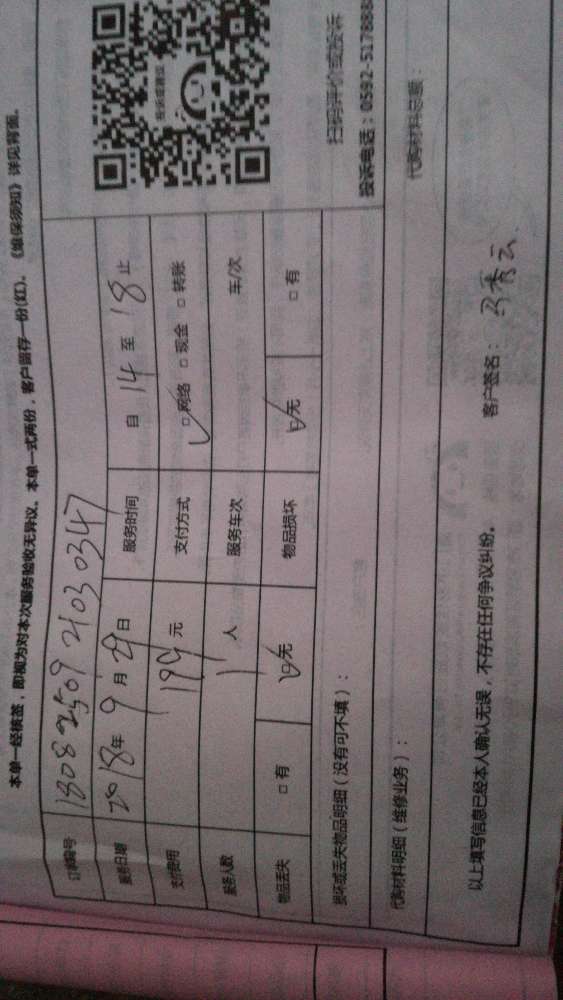 本单一经核签，即视为对本次服务验收无异议。本单一式两份，客户留存一份(红)。《维保须知》详见背面。
订单编号 1808 2509 2103 0347
服务日期 2018年 9月 29日 服务时间 自 14 至 18 止
支付费用 199 元 支付方式 □网络 □现金 □转账
服务人数 1 人 服务车次 车/次
物品丢失 □有 □无 物品损坏 □无 □有
投诉或建议
扫码评价或投诉
投诉电话：0592-5178888
损坏或丢失物品明细（没有可不填）：
代购材料明细（维修业务）： 代购材料总额：
以上填写信息已经本人确认无误，不存在任何争议纠纷。 客户签名：